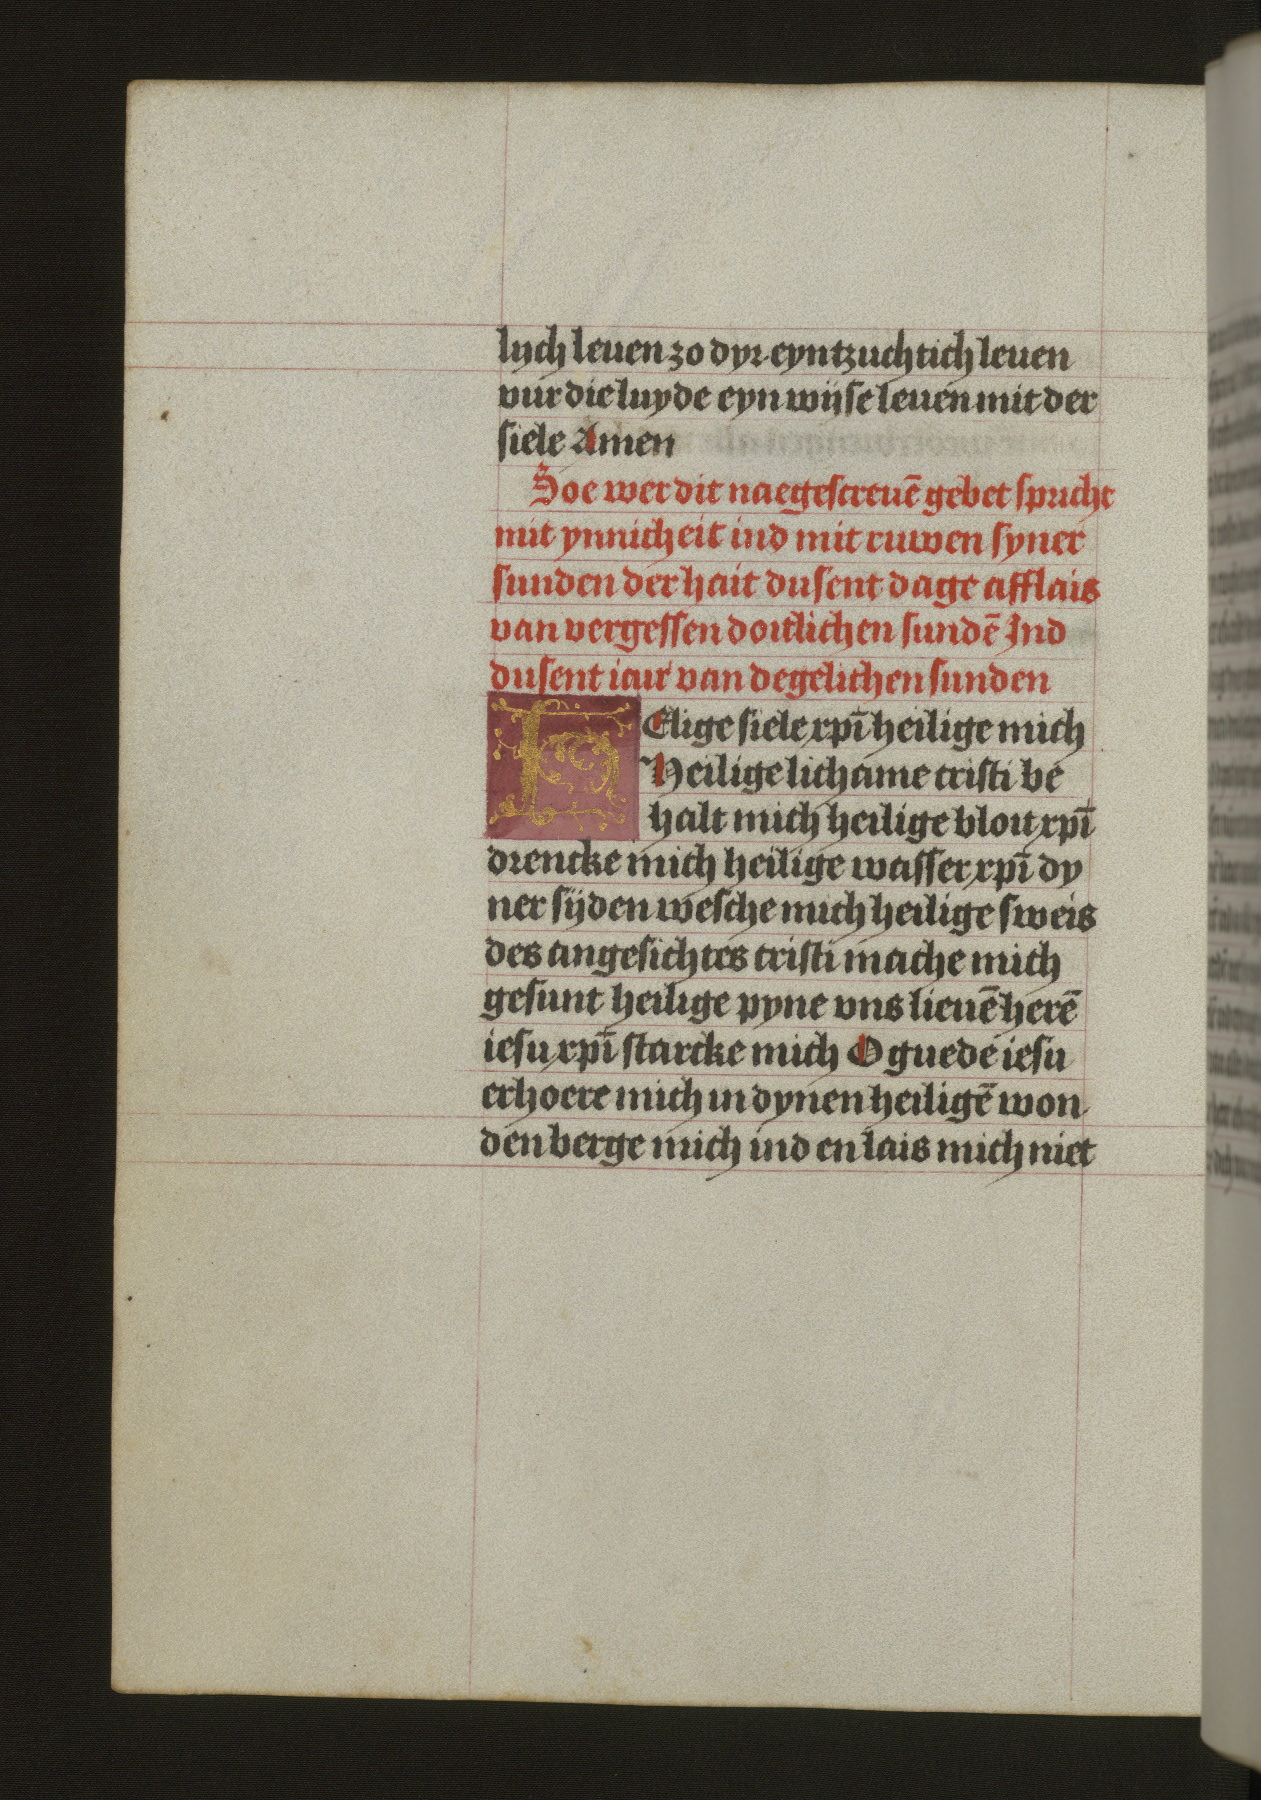 lych leuen zo dyr eyntzuchtich leuen
vur die luyde eyn wijse leuen mit der
siele Amen
Soe wer dit naegescreuē gebet spricht
mit ynnicheit ind mit ruwen syner
sunden der hait dusent dage afflais
van vergessen doitlichen sundē Ind
dusent iair van degelichen sunden
HElige siele xpī heilige mich
Heilige lichame cristi be
halt mich heilige bloit xpī
drencke mich heilige wasser xpī dy
ner sijden wesche mich heilige sweis
des angesichtes cristi mache mich
gesunt heilige pyne vns lieuē herē
iesu xpī starcke mich O guede iesu
erhoere mich in dynen heiligē won
den berge mich ind en lais mich niet